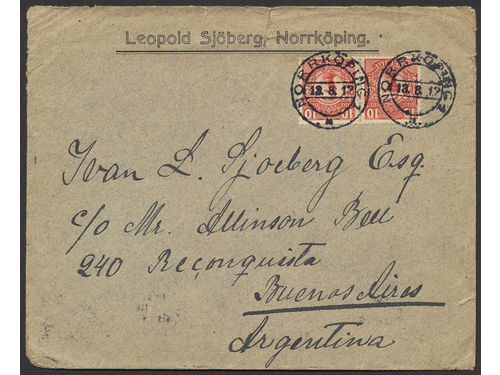 Leopold Sjöberg, Norrköping.
NORRKÖPING 1
13.8.12
NORRKÖPING 1
13.8.12
10 10
Ivan L. Sjoeberg Esq.
c/o Mr. Allinson Bell
240 Reconquista
Buenos Aires
Argentina